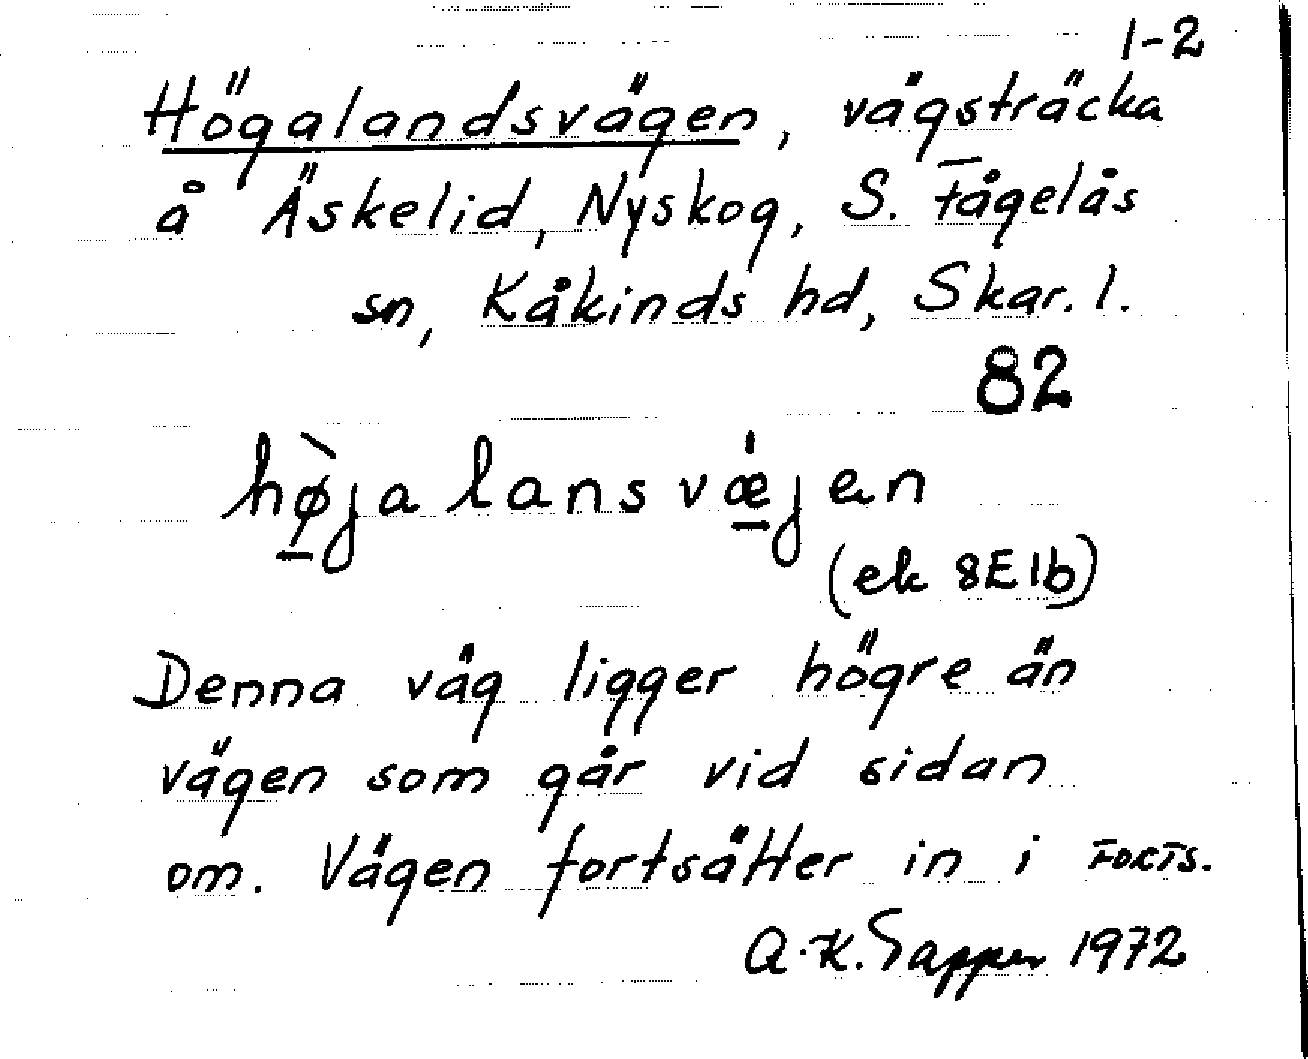 1-2
Högalandsvägen, vägsträcka
å Äskelid, Nyskog, S. Fågelås
sn, Kåkinds hd, Skar. l.
82
hø̀jalansvæ̇jen
(ek 8E1b)
Denna väg ligger högre än
vägen som går vid sidan
om. Vägen fortsätter in i FORTS.
A.K. Sapper 1972